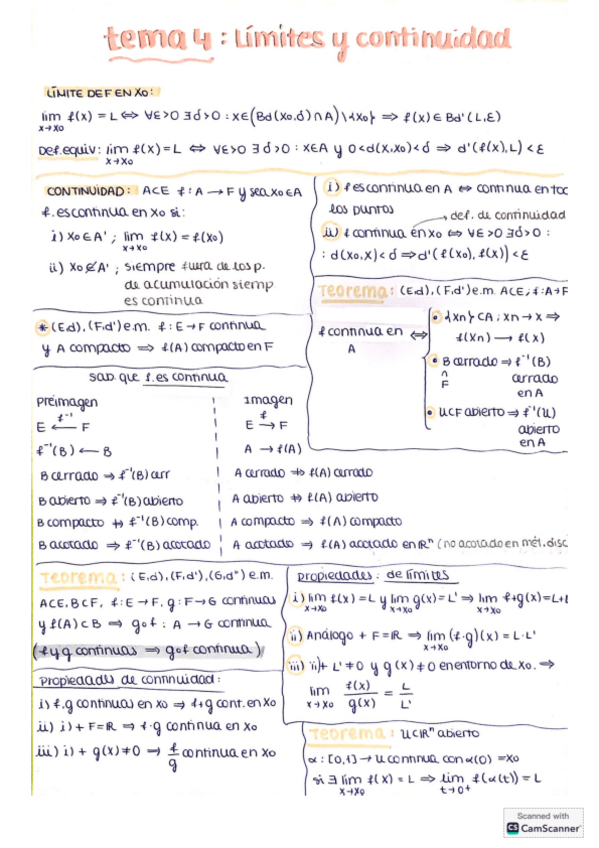 tema 4 : Límites y continuidad
LÍMITE DEF EN X₀:
lim f(x) = L ⇔ ∀ε>0 ∃δ>0 : x∈(Bd(x₀,δ)∩A)\{x₀} ⇒ f(x)∈Bd'(L,ε)
x→x₀
Def.equiv: lim f(x)=L ⇔ ∀ε>0 ∃δ>0 : x∈A y 0<d(x,x₀)<δ ⇒ d'(f(x),L)<ε
x→x₀
CONTINUIDAD: A⊂E f: A→F y sea x₀∈A
f. es continua en x₀ si:
i) x₀∈A' ; lim f(x) = f(x₀)
x→x₀
ii) x₀∉A' ; siempre fuera de los p.
de acumulación siemp
es continua
i) f es continua en A ⇔ continua en too
los puntos
def. de continuidad
ii) f continua en x₀ ⇔ ∀ε>0 ∃δ>0 :
: d(x₀,x)<δ ⇒ d'(f(x₀), f(x))<ε
* (E,d), (F,d') e.m. f: E→F continua
y A compacto ⇒ f(A) compacto en F
Teorema: (E,d), (F,d') e.m. A⊂E, f: A→F
f continua en A ⇔
• {xn}⊂A ; xn→x ⇒
f(xn) → f(x)
• B cerrado ⇒ f⁻¹(B)
∩
F
cerrado
en A
• U⊂F abierto ⇒ f⁻¹(U)
abierto
en A
sab que f. es continua
Preimagen
f⁻¹
E ← F
f⁻¹(B) ← B
B cerrado ⇒ f⁻¹(B) cerr
B abierto ⇒ f⁻¹(B) abierto
B compacto ⇏ f⁻¹(B) comp.
B acotado ⇒ f⁻¹(B) acotado
Imagen
f
E → F
A → f(A)
A cerrado ⇏ f(A) cerrado
A abierto ⇏ f(A) abierto
A compacto ⇒ f(A) compacto
A acotado ⇒ f(A) acotado en ℝⁿ (no acotado en mét. disc
Teorema: (E,d), (F,d'), (G,d'') e.m.
A⊂E, B⊂F, f: E→F, g: F→G continuas
y f(A)⊂B ⇒ g∘f : A→G continua
(f y g continuas ⇒ g∘f continua)
Propiedades de continuidad:
i) f.g continuas en x₀ ⇒ f+g cont. en x₀
ii) i) + F=ℝ ⇒ f·g continua en x₀
iii) i) + g(x)≠0 ⇒ f/g continua en x₀
Propiedades: de límites
i) lim f(x)=L y lim g(x)=L' ⇒ lim f+g(x)=L+L
x→x₀ x→x₀ x→x₀
ii) Análogo + F=ℝ ⇒ lim (f·g)(x) = L·L'
x→x₀
iii) ii)+ L'≠0 y g(x)≠0 en entorno de x₀. ⇒
lim f(x)/g(x) = L/L'
x→x₀
Teorema: U⊂ℝⁿ abierto
α: [0,1]→U continua con α(0)=x₀
si ∃ lim f(x) = L ⇒ lim f(α(t)) = L
x→x₀ t→0⁺
Scanned with
CS CamScanner